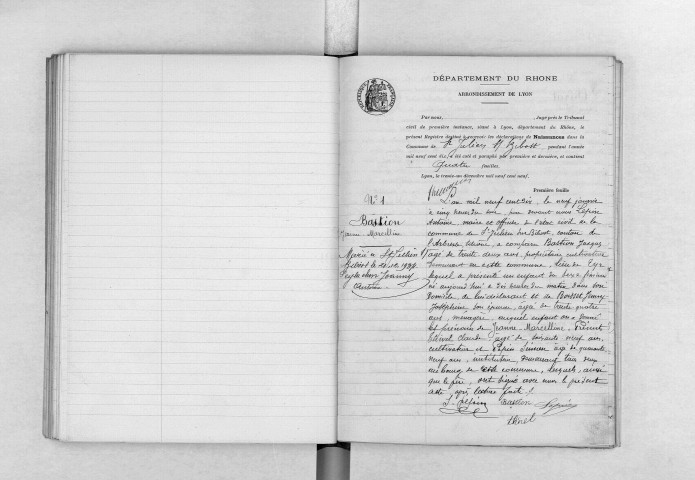 DÉPARTEMENT DU RHONE
ARRONDISSEMENT DE LYON
Par nous, Juge près le Tribunal
civil de première instance, séant à Lyon, département du Rhône, le
présent Registre destiné à recevoir les déclarations de Naissances dans la
Commune de St Julien s/ Bibost, pendant l'année
mil neuf cent dix, a été coté et paraphé par première et dernière, et contient
Quatre feuilles.
Lyon, le trente-un décembre mil neuf cent neuf.
Première feuille
N° 1
Bastion
Jeanne Marcelline
Mariée à St Julien s/
Bibost le
Joanny
Antoine
L'an mil neuf cent dix, le neuf janvier
à cinq heures du soir, par devant nous Lépine
Antoine, maire et officier de l'état civil de la
commune de St Julien sur Bibost, canton de
l'Arbresle Rhône, a comparu Bastion Jacques
âgé de trente deux ans, propriétaire cultivateur
demeurant en cette commune, lieu de
lequel a présenté un enfant du sexe féminin
né aujourd'hui à six heures du matin dans son
domicile, de lui déclarant et de Jenny
Joséphine son épouse, âgée de trente quatre
ans, ménagère, auquel enfant on a donné
les prénoms de Jeanne-Marcelline. Présents
Claude âgé de soixante neuf ans,
cultivateur et âgé de quarante
neuf ans, instituteur demeurant tous deux
au bourg de cette commune, lesquels, ainsi
que le père, ont signé avec nous le présent
acte, après lecture faite.
Bastion Lépine